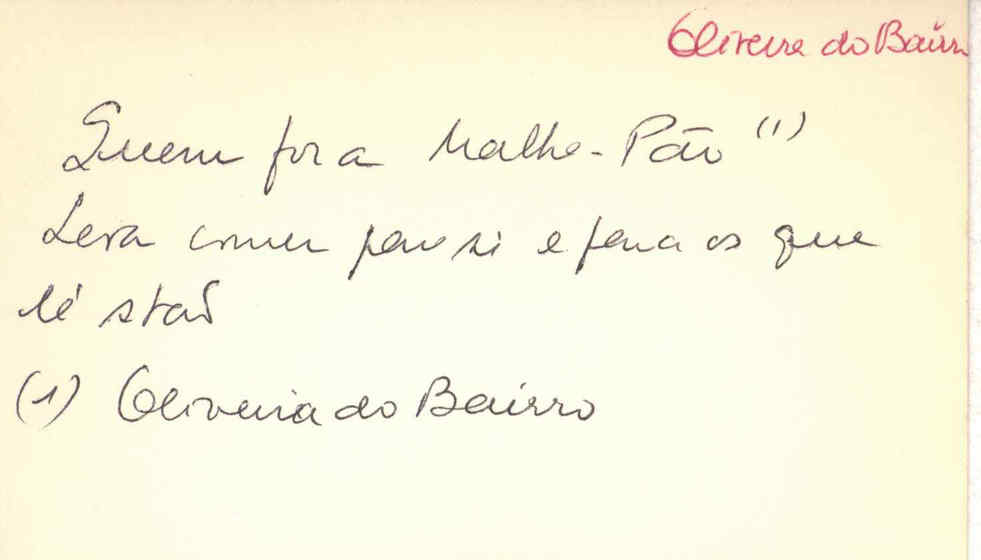 Oliveira do Bairro
Quem for a Malha-Pão (1)
Leva comer para si e para os que
lá stão
(1) Oliveira do Bairro